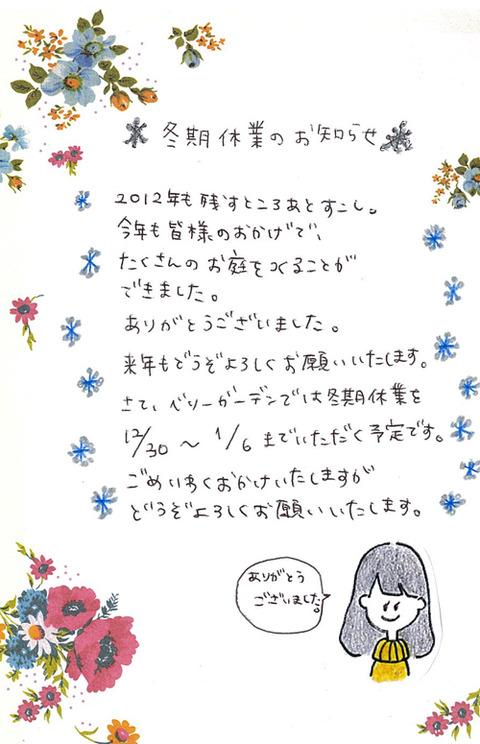 冬期休業のお知らせ
2012年も残すところあとすこし。
今年も皆様のおかげで、
たくさんのお庭をつくることが
できました。
ありがとうございました。
来年もどうぞよろしくお願いいたします。
さて、ベリーガーデンでは冬期休業を
12/30 〜 1/6 までいただく予定です。
ごめいわくおかけいたしますが
どうぞよろしくお願いいたします。
ありがとう
ございました。